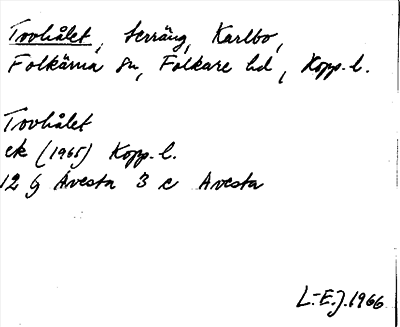 Trohålet, terräng, Karlbo,
Folkärna sn, Folkare hd, Kopp. l.
Trohålet
ek (1965) Kopp. l.
12 G Avesta 3 c Avesta
L.-E.J. 1966